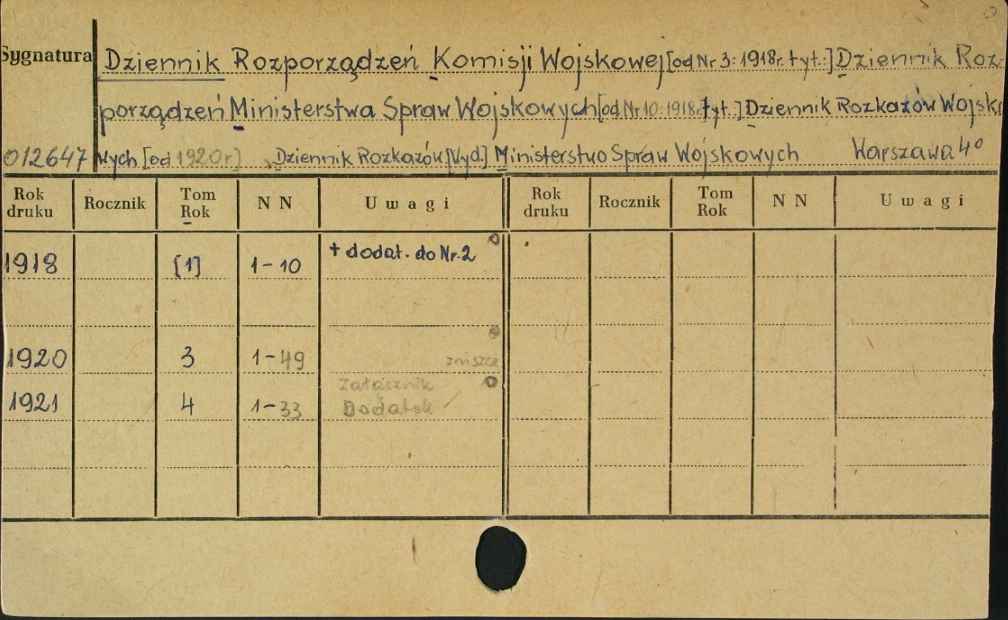 Sygnatura Dziennik Rozporządzeń Komisji Wojskowej [od Nr 3: 1918r. tyt.:] Dziennik Roz-
porządzeń Ministerstwa Spraw Wojskowych [od Nr 10. 1918r. tyt.:] Dziennik Rozkazów Wojsko
012647 wych [od 1920 r] Dziennik Rozkazów [Wyd.] Ministerstwo Spraw Wojskowych Warszawa 4°
Rok druku Rocznik Tom Rok N N Uwagi Rok druku Rocznik Tom Rok N N Uwagi
1918 [1] 1-10 + dodat. do Nr. 2
1920 3 1-49 zniszcz
1921 4 1-33 Załącznik
Dodatek